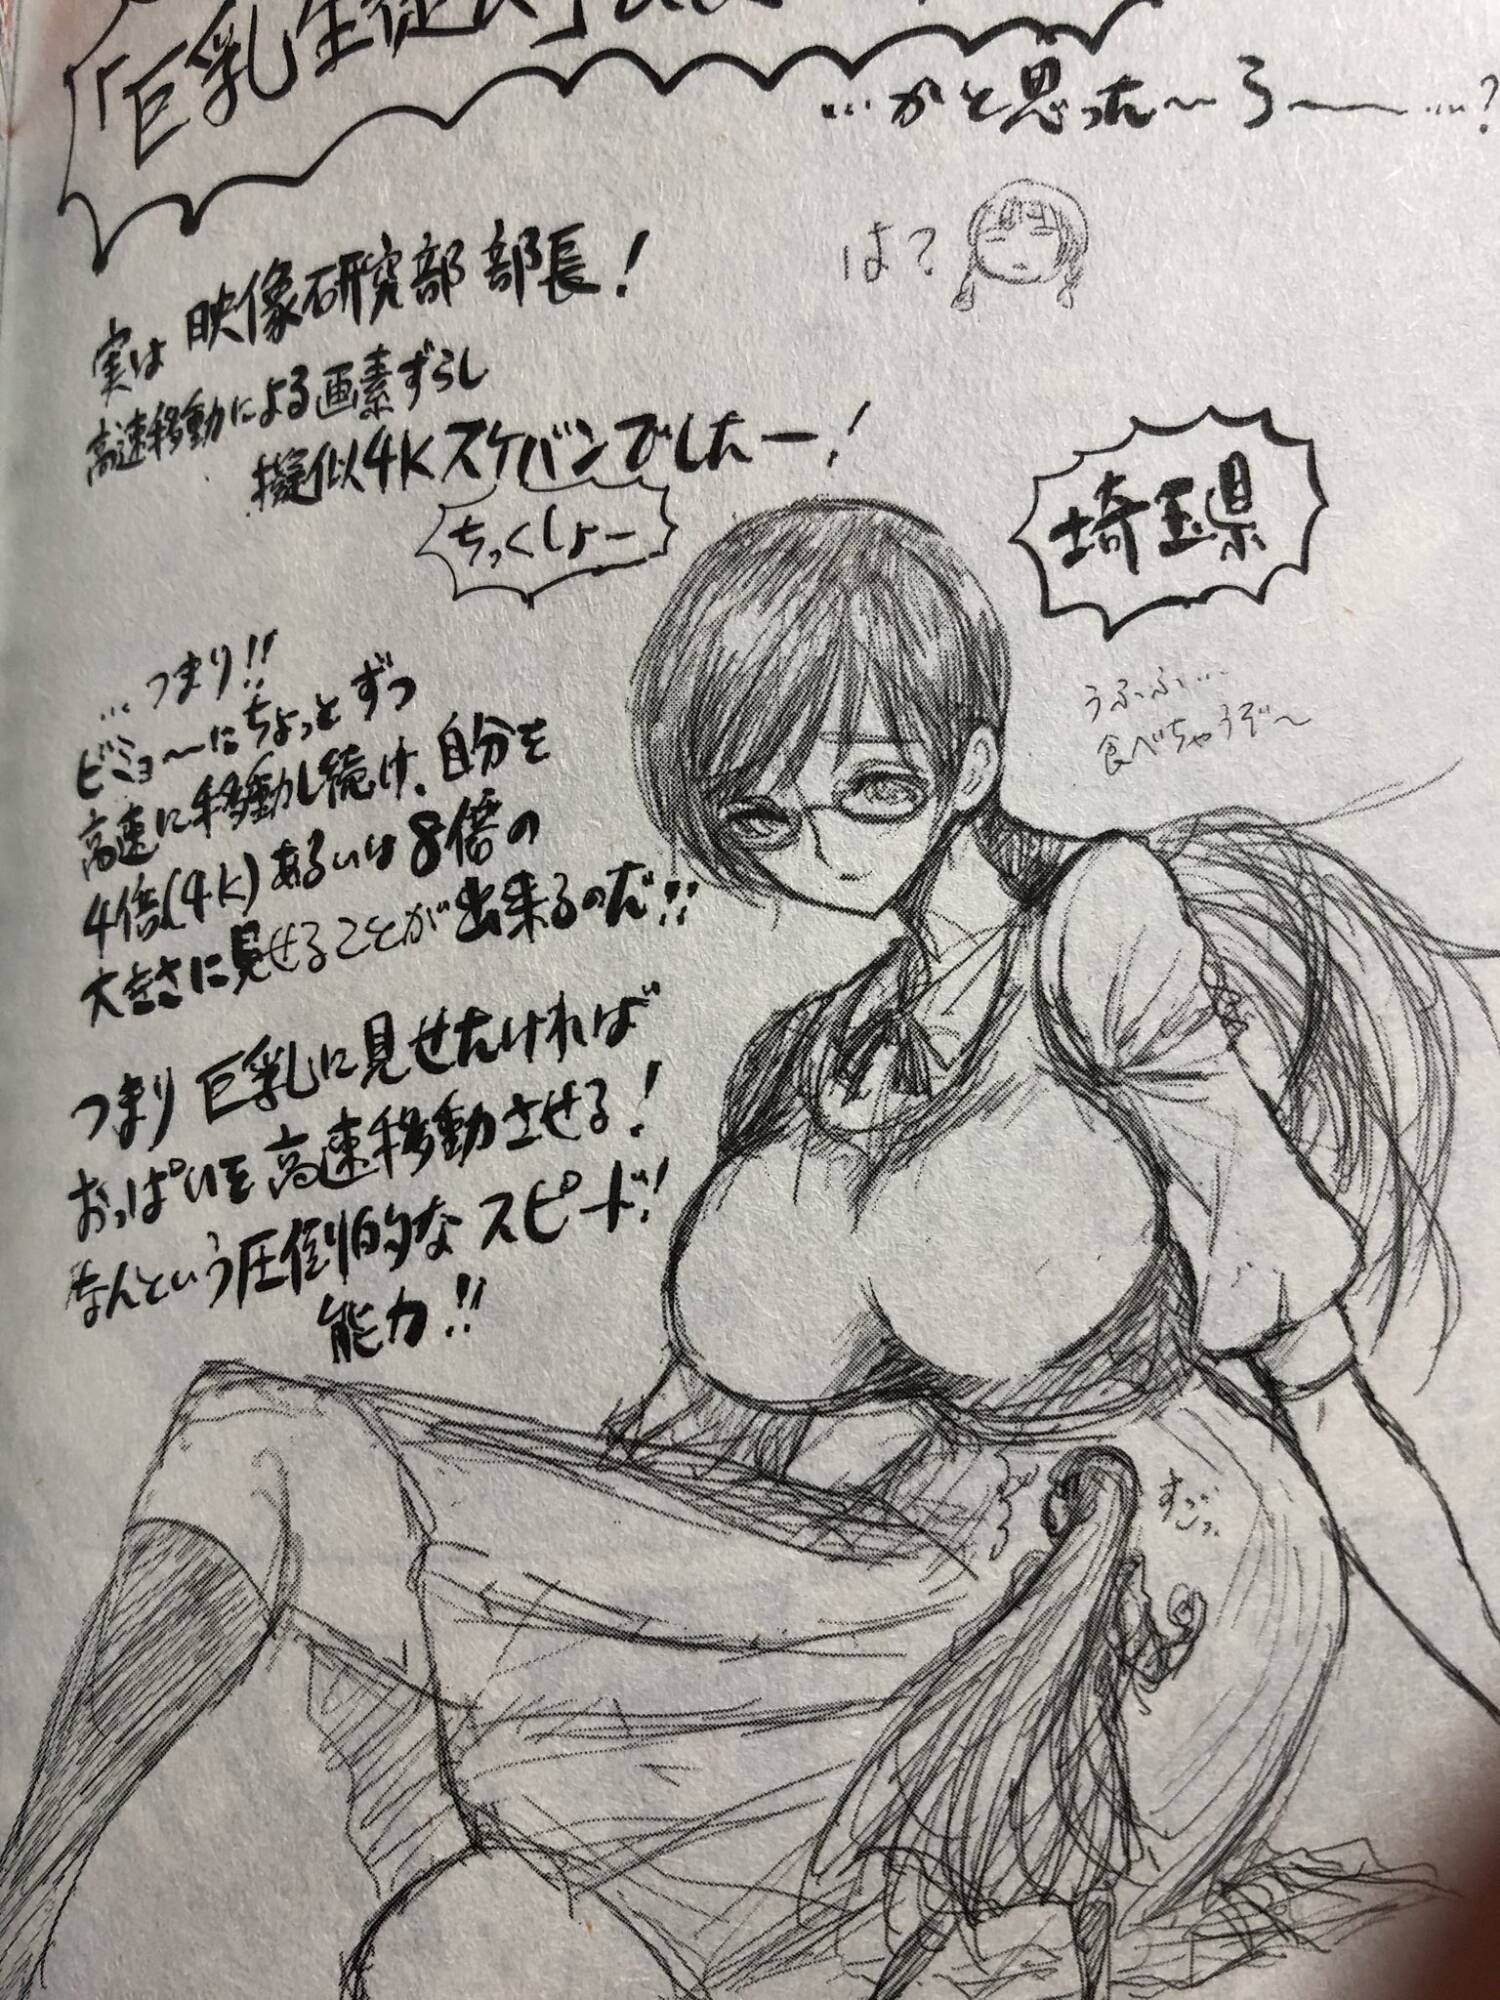 「巨乳生徒
…かと思った〜ろ〜…?
は?
実は 映像研究部 部長!
高速移動による画素ずらし
擬似4Kスケバンでしたー!
ちっくしょー
埼玉県
うふふ…
食べちゃうぞ〜
…つまり!!
ビミョ〜にちょっとずつ
高速に移動し続け、自分を
4倍(4K)あるいは8倍の
大きさに見せることが出来るのだ!!
つまり 巨乳に見せたければ
おっぱいを高速移動させる!
なんという圧倒的なスピード!
能力!!
すごっ